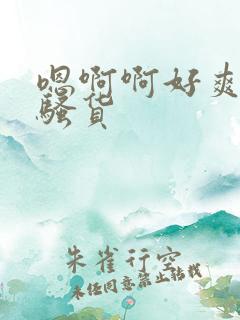 嗯啊啊好爽
骚货
朱雀行空
未经同意禁止转载